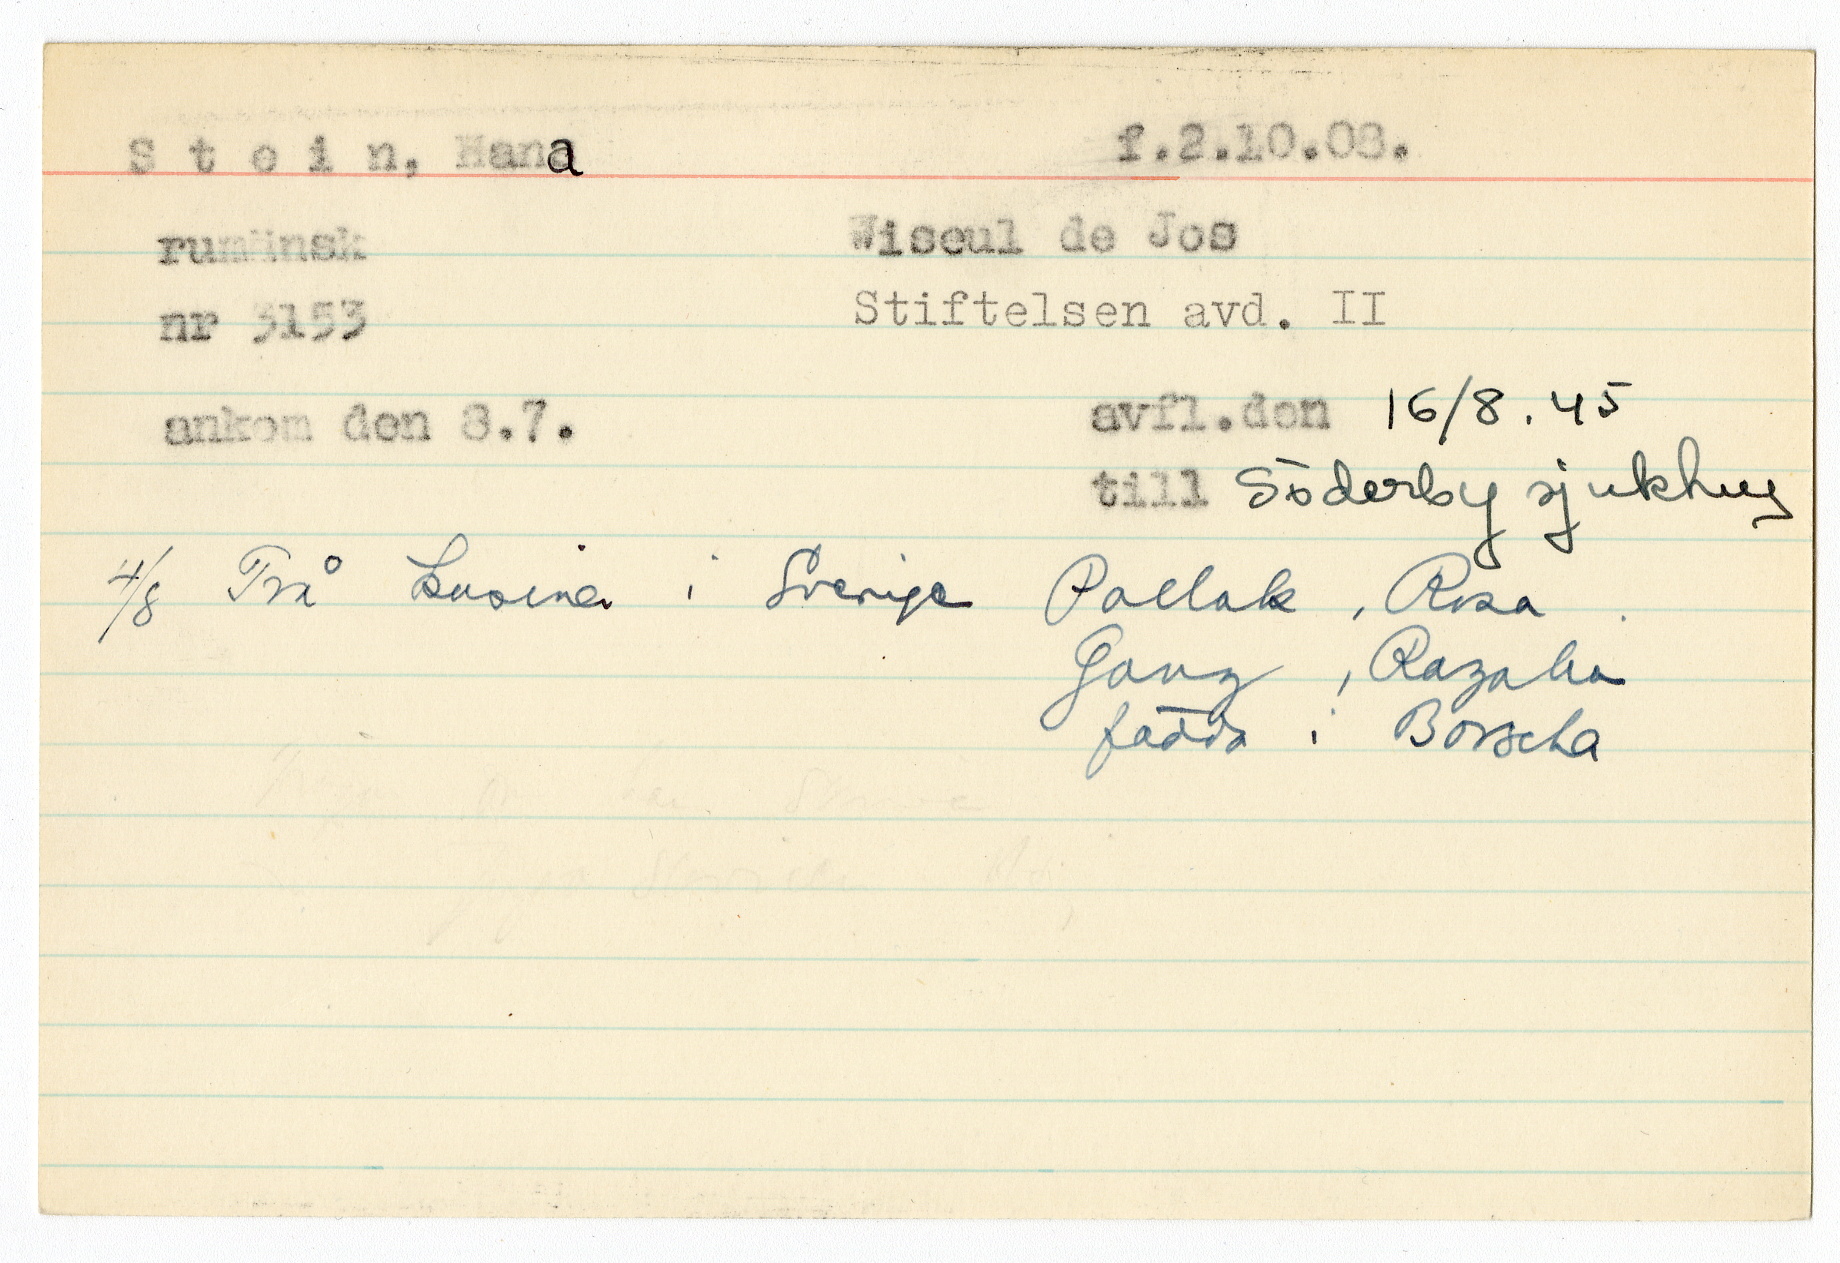 Stein, Hana f.2.10.08.
rumänsk Wiseul de Jos
nr 3153 Stiftelsen avd. II
ankom den 8.7. avfl.den 16/8.45
till Söderby sjukhus
4/8 Två kusiner i Sverige Pollak, Rosa.
Ganz,
födda i Borscha